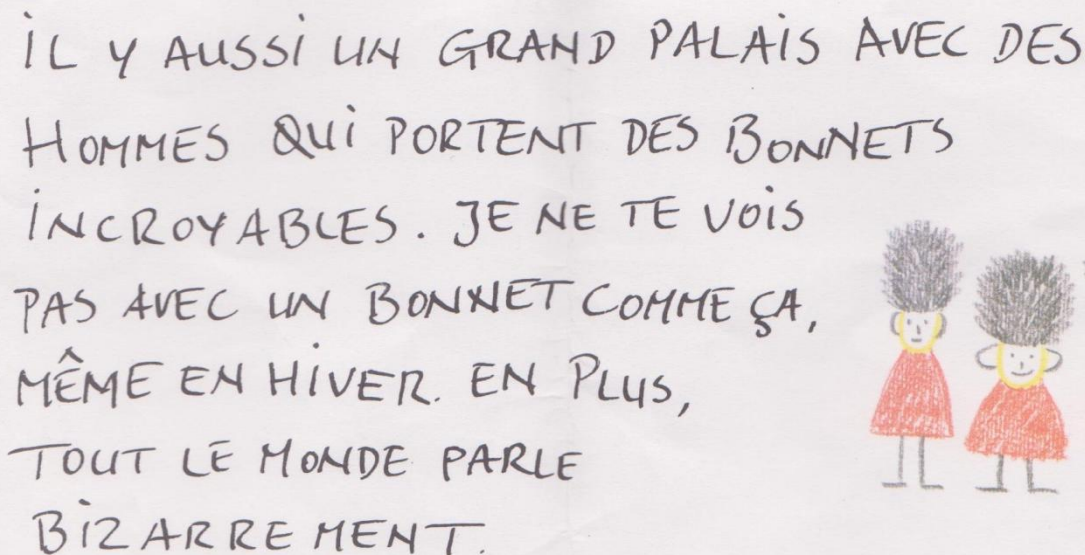 iL Y AUSSi UN GRAND PALAiS AVEC DES
HOMMES QUi PORTENT DES BONNETS
iNCROYABLES. JE NE TE VOiS
PAS AVEC UN BONNET COMME ÇA,
MÊME EN HiVER. EN PLUS,
TOUT LE MONDE PARLE
BiZARREMENT.